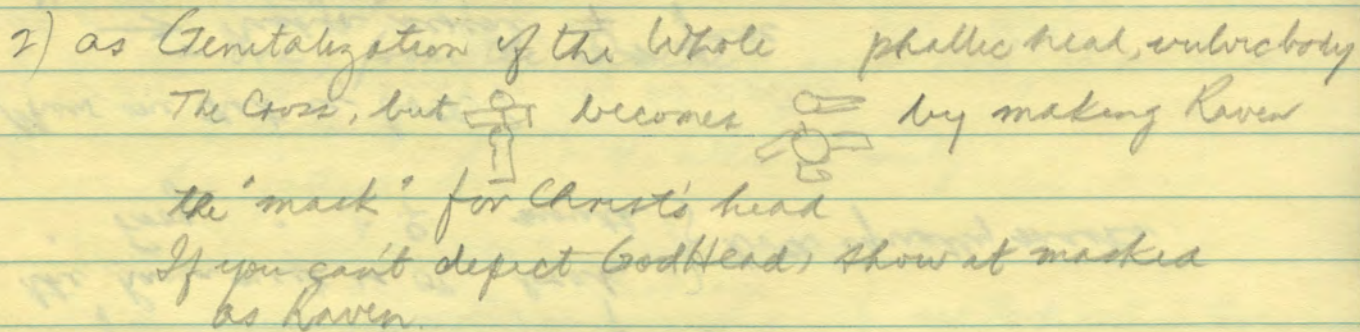 2) as Genitalization of the Whole phallic head, vulvic body
The Cross, but becomes by making Raven
the "mask" for Christ's head
If you can't depict GodHead, show it masked
as Raven.